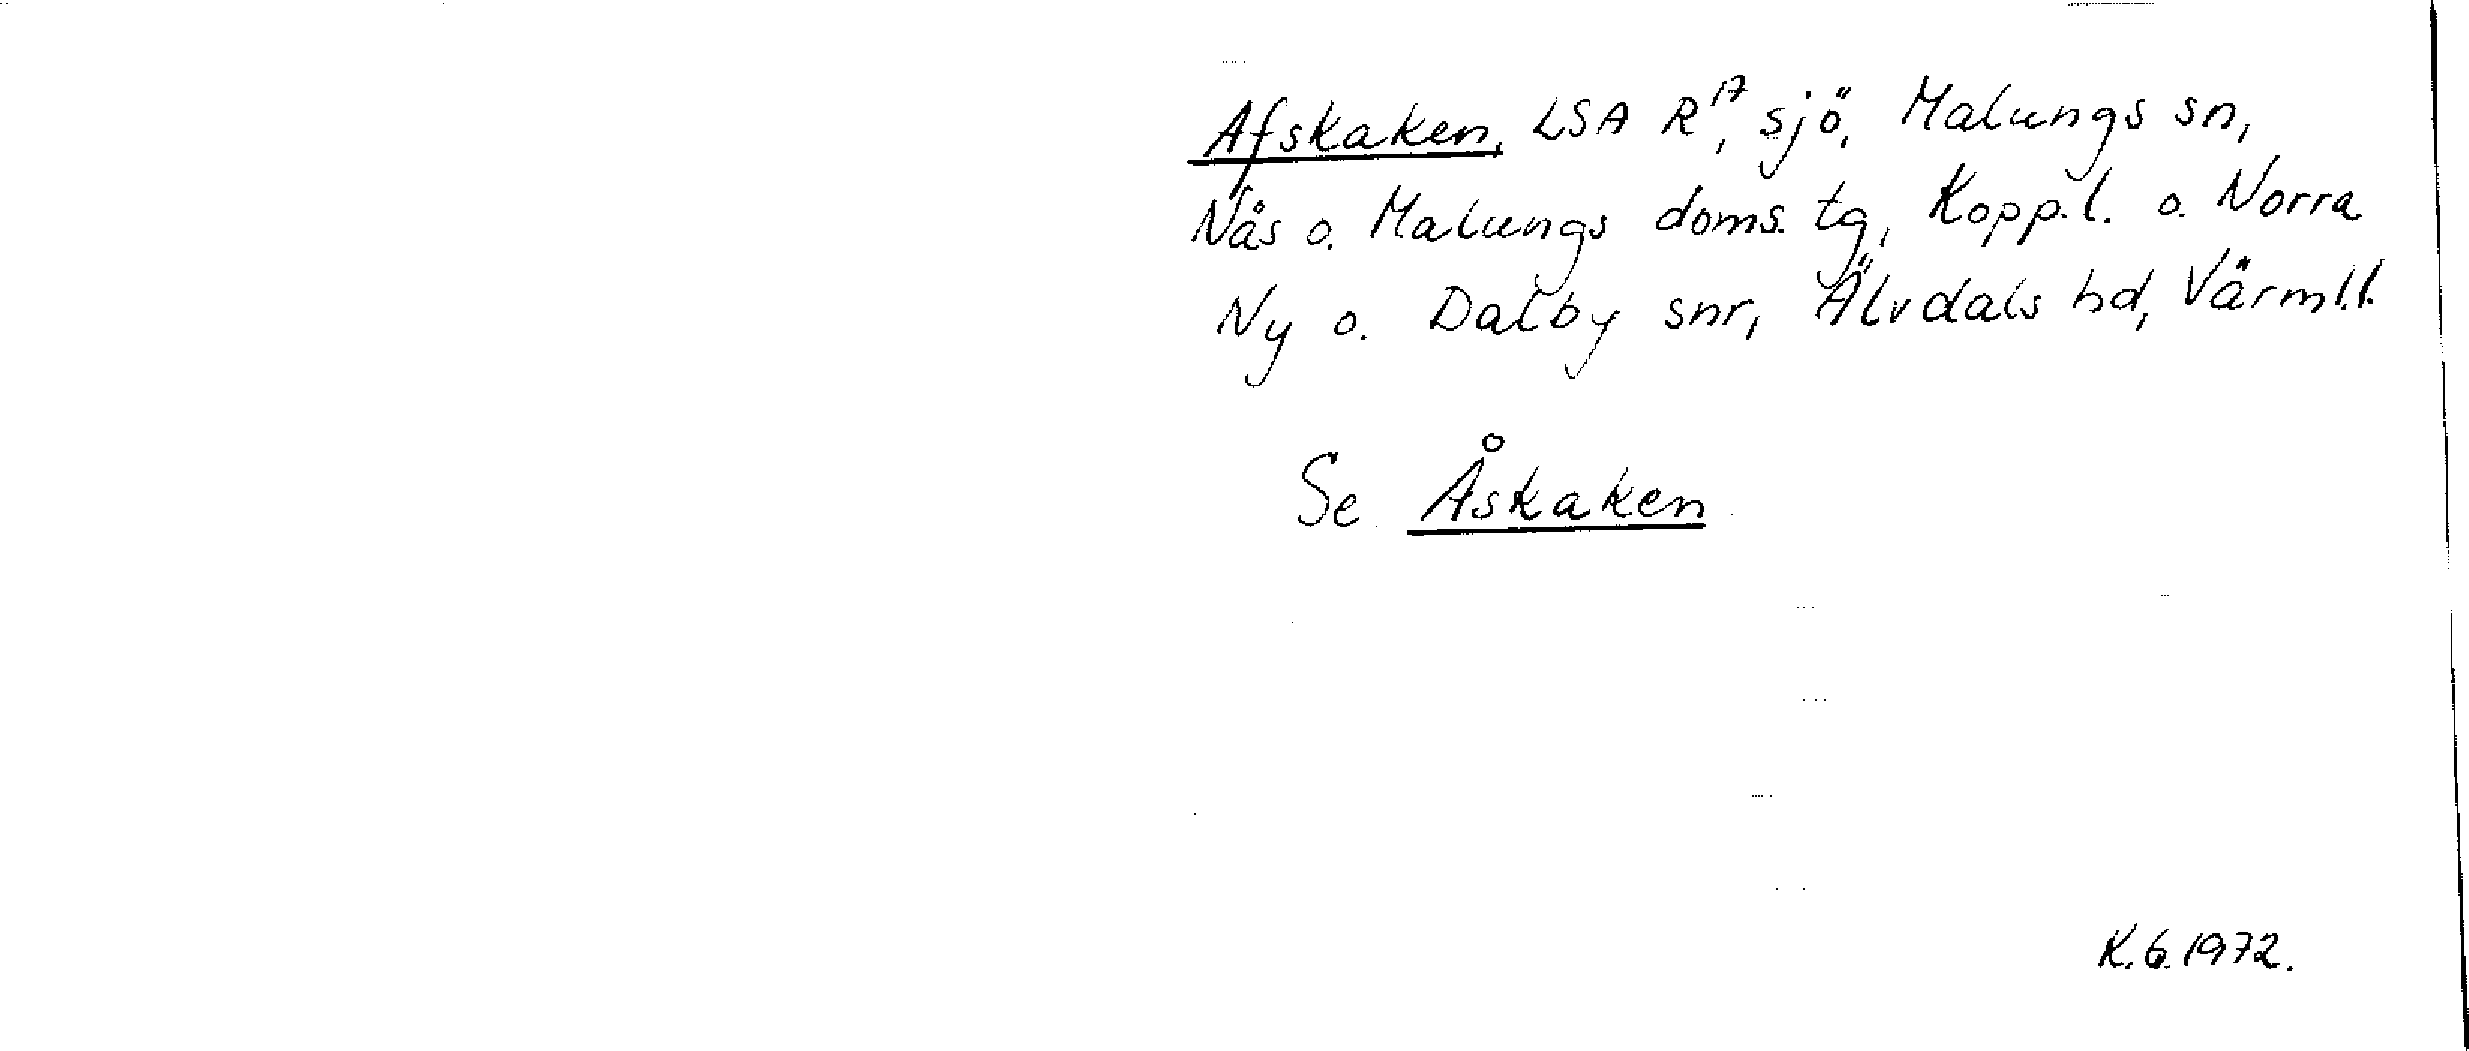 Afskaken, LSA R¹⁷, sjö, Malungs sn,
Näs o. Malungs doms. tg, Kopp.l. o. Norra
Ny o. Dalby snr, Älvdals hd, Värml.l.
Se Åskaken
K.G.1972.